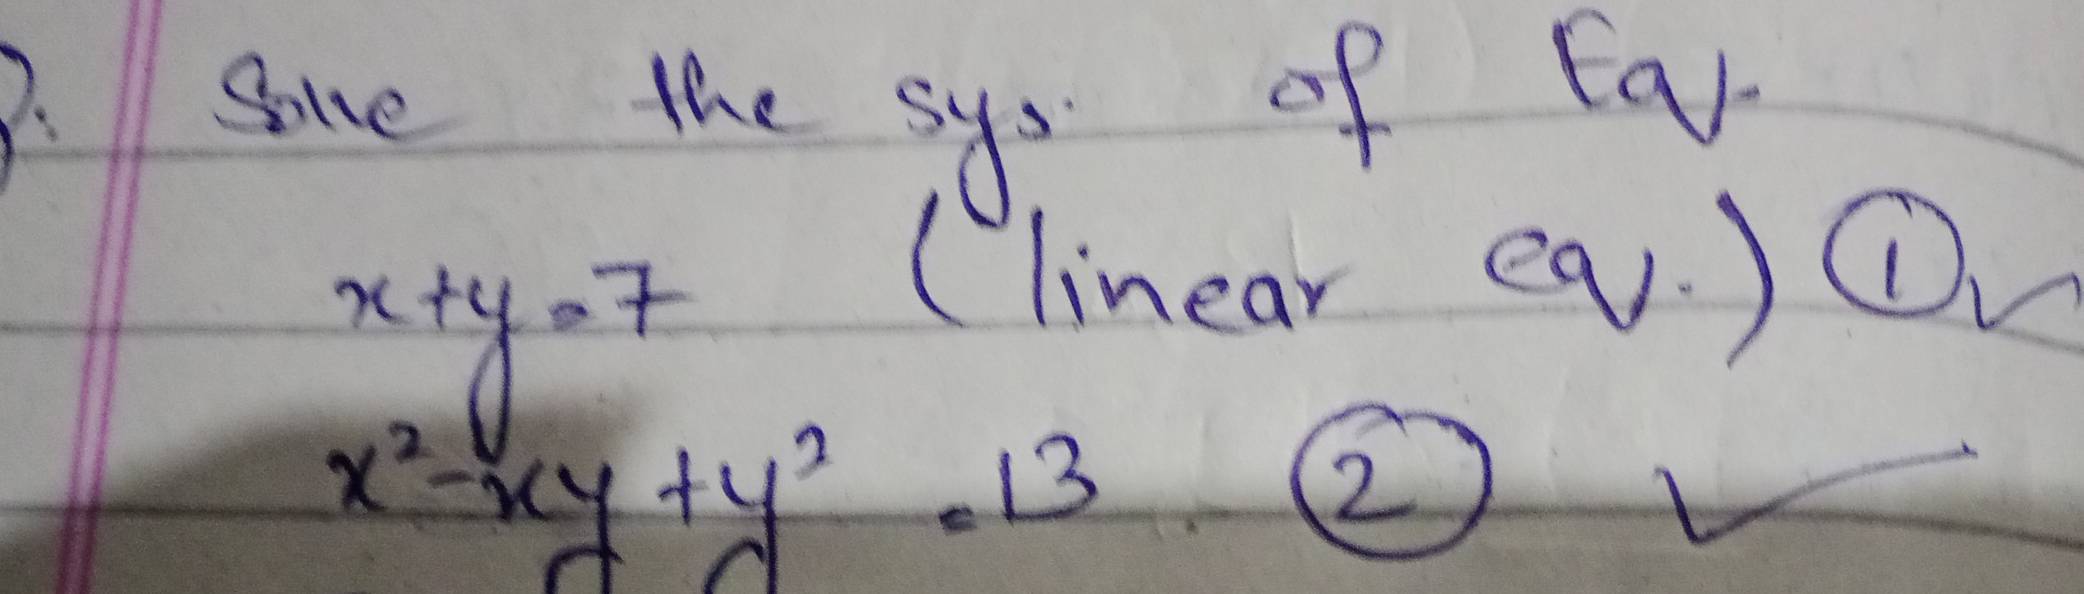 Solve the sys. of Eq.
x+y=7 (linear eq.) ①
x²-xy+y² =13 ②